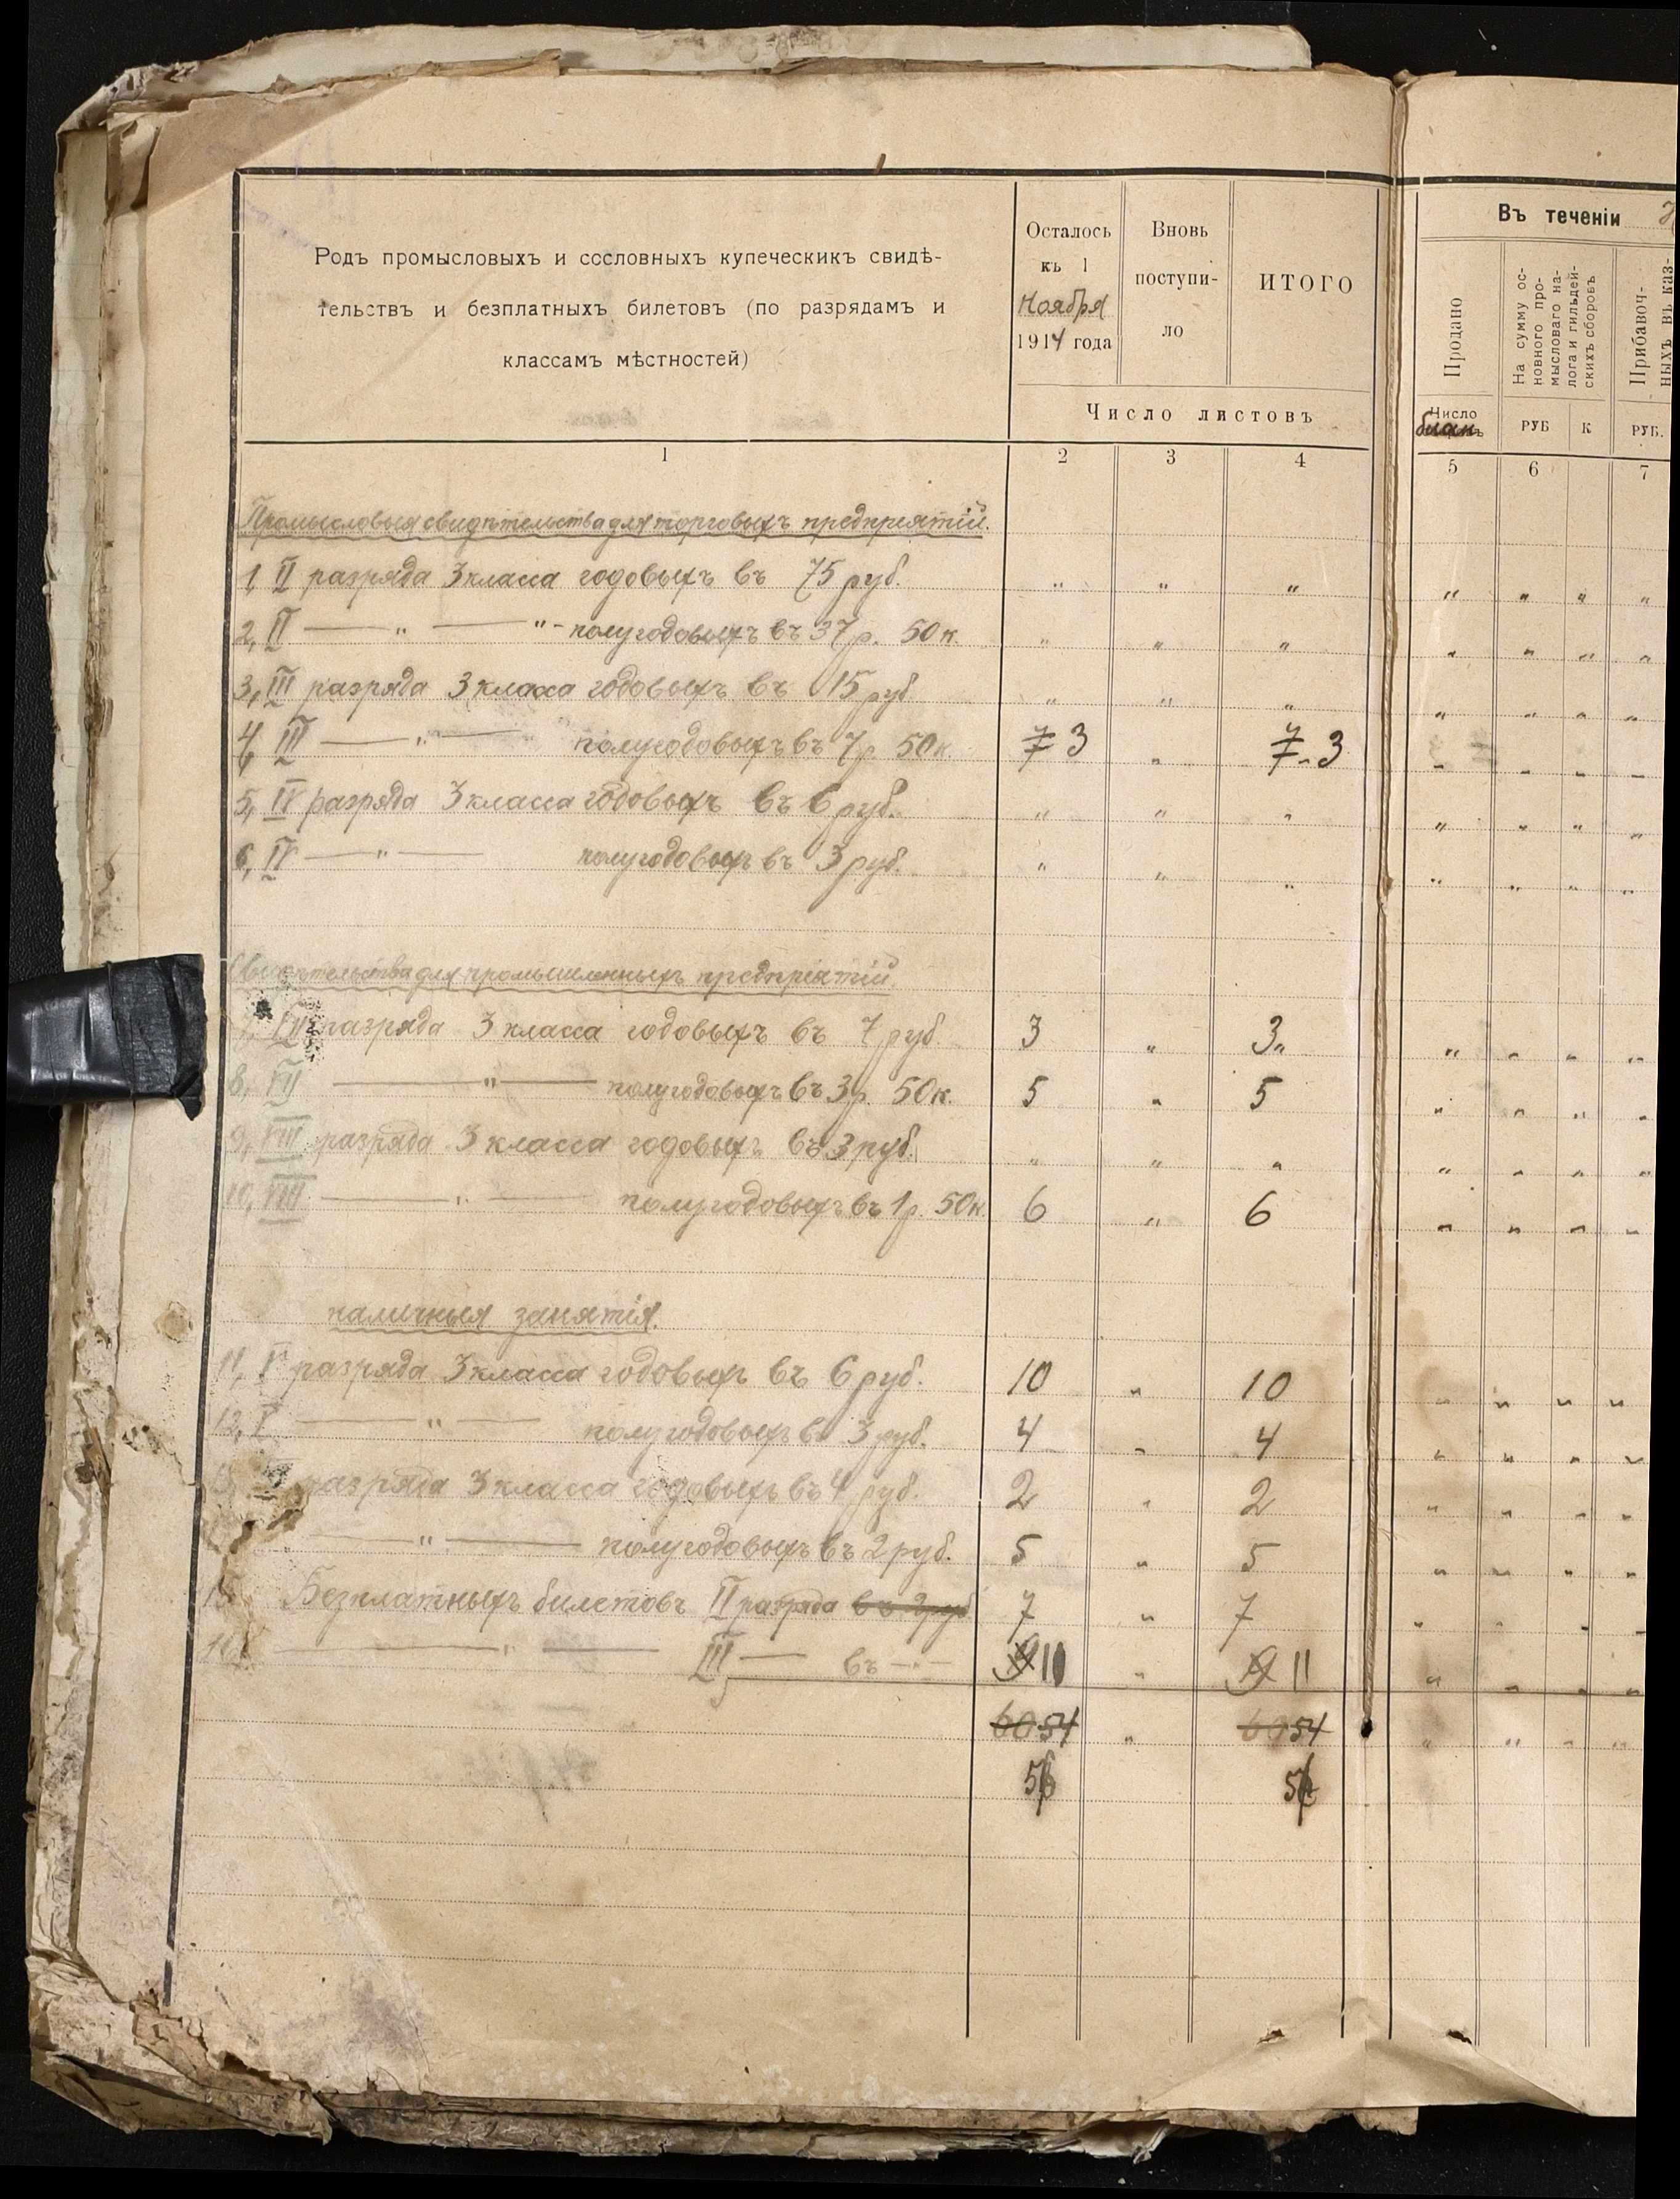 Родъ промысловыхъ и сословныхъ купеческикъ свидѣ-
тельствъ и безплатныхъ билетовъ (по разрядамъ и
классамъ мѣстностей)
Осталось
къ 1
Ноября
1914 года
Вновь
поступи-
ло
ИТОГО
Число листовъ
Въ теченіи
Продано
На сумму ос-
новного про-
мысловаго на-
лога и гильдей-
скихъ сборовъ
Прибавоч-
ныхъ въ каз-
Число
бланъ
РУБ К РУБ.
1 2 3 4 5 6 7
Промысловыя свидѣтельства для торговыхъ предпріятій.
1, II разряда 3 класса годовыхъ въ 75 руб. " " " " " " "
2, II — " — " - полугодовыхъ въ 37 р. 50 к. " " " " " " "
3, III разряда 3 класса годовыхъ въ 15 руб. " " " " " " "
4, III — " — " полугодовыхъ въ 7 р. 50 к. 7 3 " 7 - 3 " " " "
5, IV разряда 3 класса годовыхъ въ 6 руб. " " " " " " "
6, IV — " — полугодовыхъ въ 3 руб. " " " " " " "
Свидѣтельства для промышленныхъ предпріятій.
7, VII разряда 3 класса годовыхъ въ 7 руб. 3 " 3 " " " " "
8, VII — " — полугодовыхъ въ 3 р. 50 к. 5 " 5 " " " "
9, VIII разряда 3 класса годовыхъ въ 3 руб. " " " " " " "
10, VIII — " — полугодовыхъ въ 1 р. 50 к. 6 " 6 " " " "
наличныя занятія.
11, V разряда 3 класса годовыхъ въ 6 руб. 10 " 10 " " " "
12, V — " — полугодовыхъ въ 3 руб. 4 " 4 " " " "
разряда 3 класса годовыхъ въ 4 руб. 2 " 2 " " " "
— " — полугодовыхъ въ 2 руб. 5 " 5 " " " "
15 Безплатныхъ билетовъ II разряда въ 2 руб 7 " 7 " " " "
16 — " — III — въ — " — 11 " 11 " " " "
60 54 " 60 54 " " " "